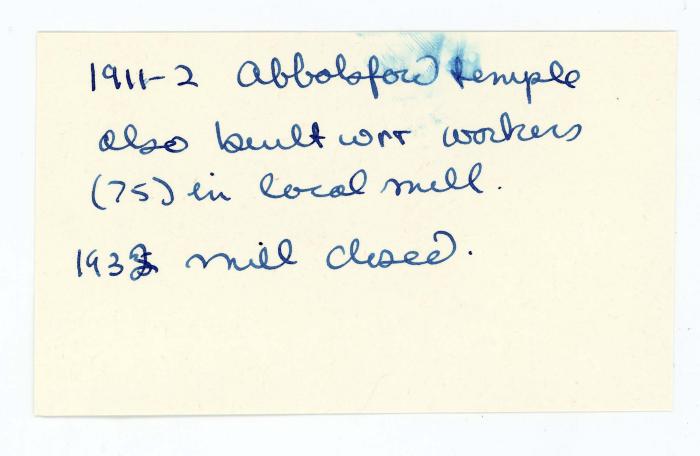 1911-2 Abbotsford temple
also built wrt workers
(75) in local mill.
193 mill closed.